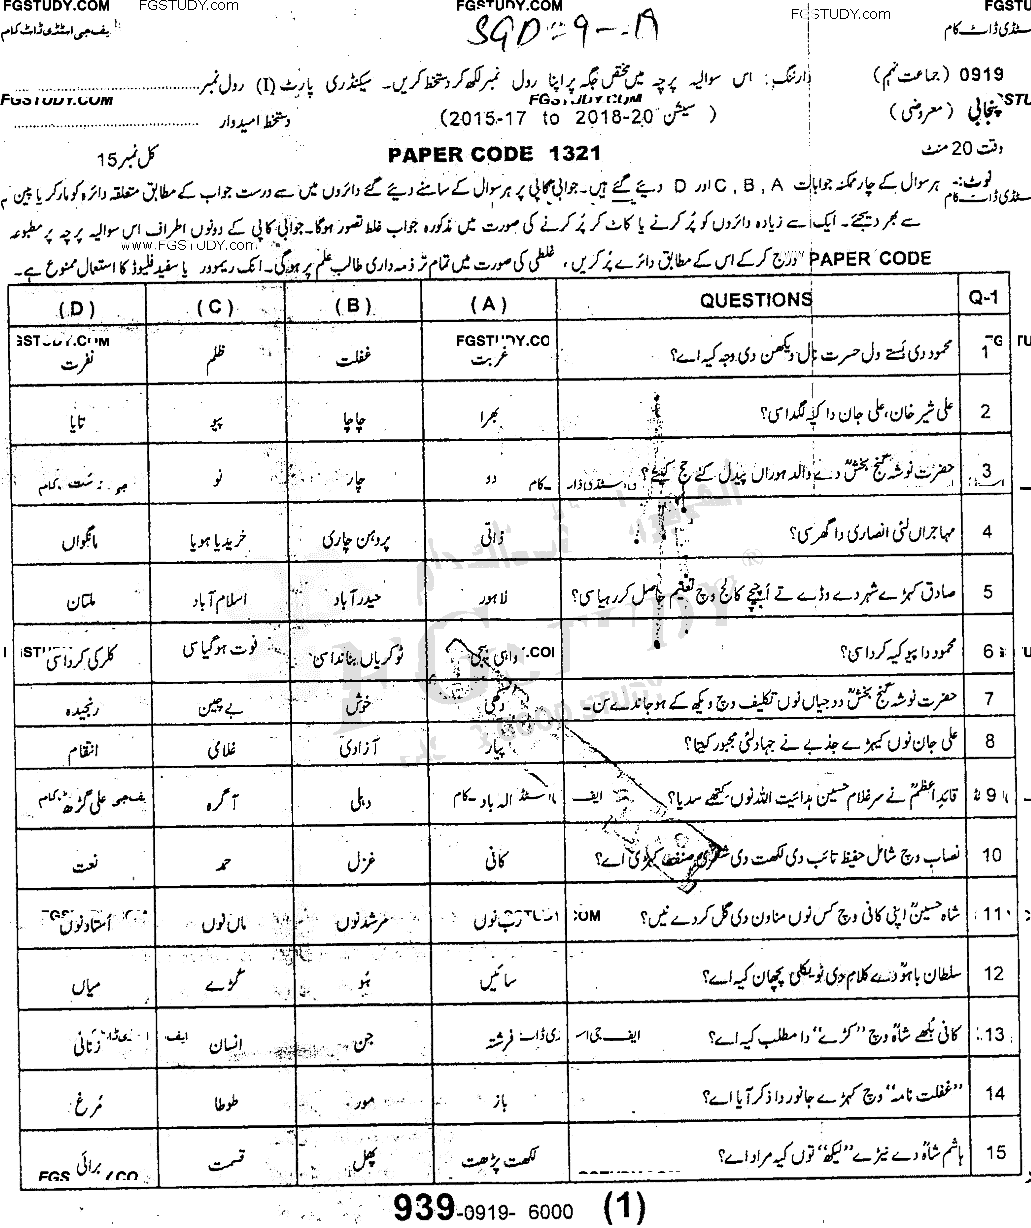 FGSTUDY.COM FGSTUDY.COM FGSTUDY.COM FGSTUDY.com FGSTU
ایف جی اسٹڈی ڈاٹ کام SGD-9-A سٹڈی ڈاٹ کام
0919 (جماعت نہم) وارننگ: اس سوالیہ پرچہ میں مختص جگہ پر اپنا رول نمبر لکھ کر دستخط کریں۔ سیکنڈری پارٹ (I) رول نمبر
پنجابی (معروضی) (سیشن 2015-17 to 2018-20) دستخط امیدوار
وقت 20 منٹ PAPER CODE 1321 کل نمبر 15
نوٹ:۔ ہر سوال کے چار ممکنہ جوابات A ,B ,C اور D دیئے گئے ہیں۔ جوابی کاپی پر ہر سوال کے سامنے دیئے گئے دائروں میں سے درست جواب کے مطابق متعلقہ دائرہ کو مارکر یا پین
سے بھر دیجئے۔ ایک سے زیادہ دائروں کو پُر کرنے یا کاٹ کر پُر کرنے کی صورت میں مذکورہ جواب غلط تصور ہوگا۔ جوابی کاپی کے دونوں اطراف اس سوالیہ پرچہ پر مطبوعہ
www.FGSTUDY.com
PAPER CODE درج کرکے اس کے مطابق دائرے پُر کریں، غلطی کی صورت میں تمام تر ذمہ داری طالب علم پر ہوگی۔ انک ریموور یا سفید فلیوڈ کا استعمال ممنوع ہے۔
Q-1 QUESTIONS (A) (B) (C) (D)
1 محمود دی بُستے ول حسرت نال ویکھن دی وجہ کیہ اے؟ غربت غفلت ظلم نفرت
2 علی شیر خان، علی جان دا کیہ لگدا سی؟ بھرا چاچا پیو تایا
3 حضرت نوشہ گنج بخشؒ دے والد ہوراں پیدل کنے حج کیتے؟ دو چار نو
4 مہاجراں لئی انصاری دا گھر سی؟ ذاتی پروہن چاری خریدیا ہویا مانگواں
5 صادق کہڑے شہر دے وڈے تے اُچیچے کالج وچ تعلیم حاصل کر رہیا سی؟ لاہور حیدرآباد اسلام آباد ملتان
6 محمود دا پیو کیہ کردا سی؟ واہی بیجی ٹوکریاں بناندا سن فوت ہوگیا سی کلرکی کردا سی
7 حضرت نوشہ گنج بخشؒ دوجیاں نوں تکلیف وچ ویکھ کے ہو جاندے سن۔ دکھی خوش بے چین رنجیدہ
8 علی جان نوں کیہڑے جذبے نے جہاد لئی مجبور کیتا؟ پیار آزادی غلامی انتقام
9 قائداعظمؒ نے سر غلام حسین ہدائیت اللہ نوں کتھے سدیا؟ الہ باد دہلی آگرہ علی گڑھ
10 نصاب وچ شامل حفیظ تائب دی لکھت دی شعری صنف کہڑی اے؟ کافی غزل حمد نعت
11 شاہ حسینؒ اپنی کافی وچ کس نوں مناون دی گل کردے نیں؟ رب نوں مرشد نوں ماں نوں اُستاد نوں
12 سلطان باہوؒ دے کلام دی ٹویکلی پچھان کیہ اے؟ سائیں ہُو گھڑے میاں
13 کافی بُلھے شاہؒ وچ ”کڑے“ دا مطلب کیہ اے؟ فرشتہ جن انسان زنانی
14 ”غفلت نامہ“ وچ کہڑے جانور دا ذکر آیا اے؟ باز مور طوطا مُرغ
15 ہاشم شاہؒ دے نیڑے ”لیکھ“ توں کیہ مراد اے؟ لکھت پڑھت پھل قسمت برائی
939-0919- 6000 (1)